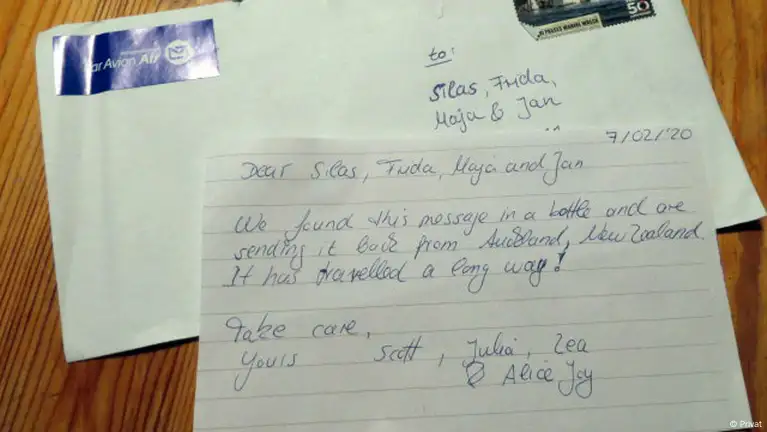 Par Avion Air
50
to:
Silas, Frida,
Maja & Jan
7/02/'20
Dear Silas, Frida, Maja and Jan
We found this message in a bottle and are
sending it back from Auckland, New Zealand.
It has travelled a long way!
Take care,
Yours Scott, Julia, Lea
& Alice Joy
© Privat